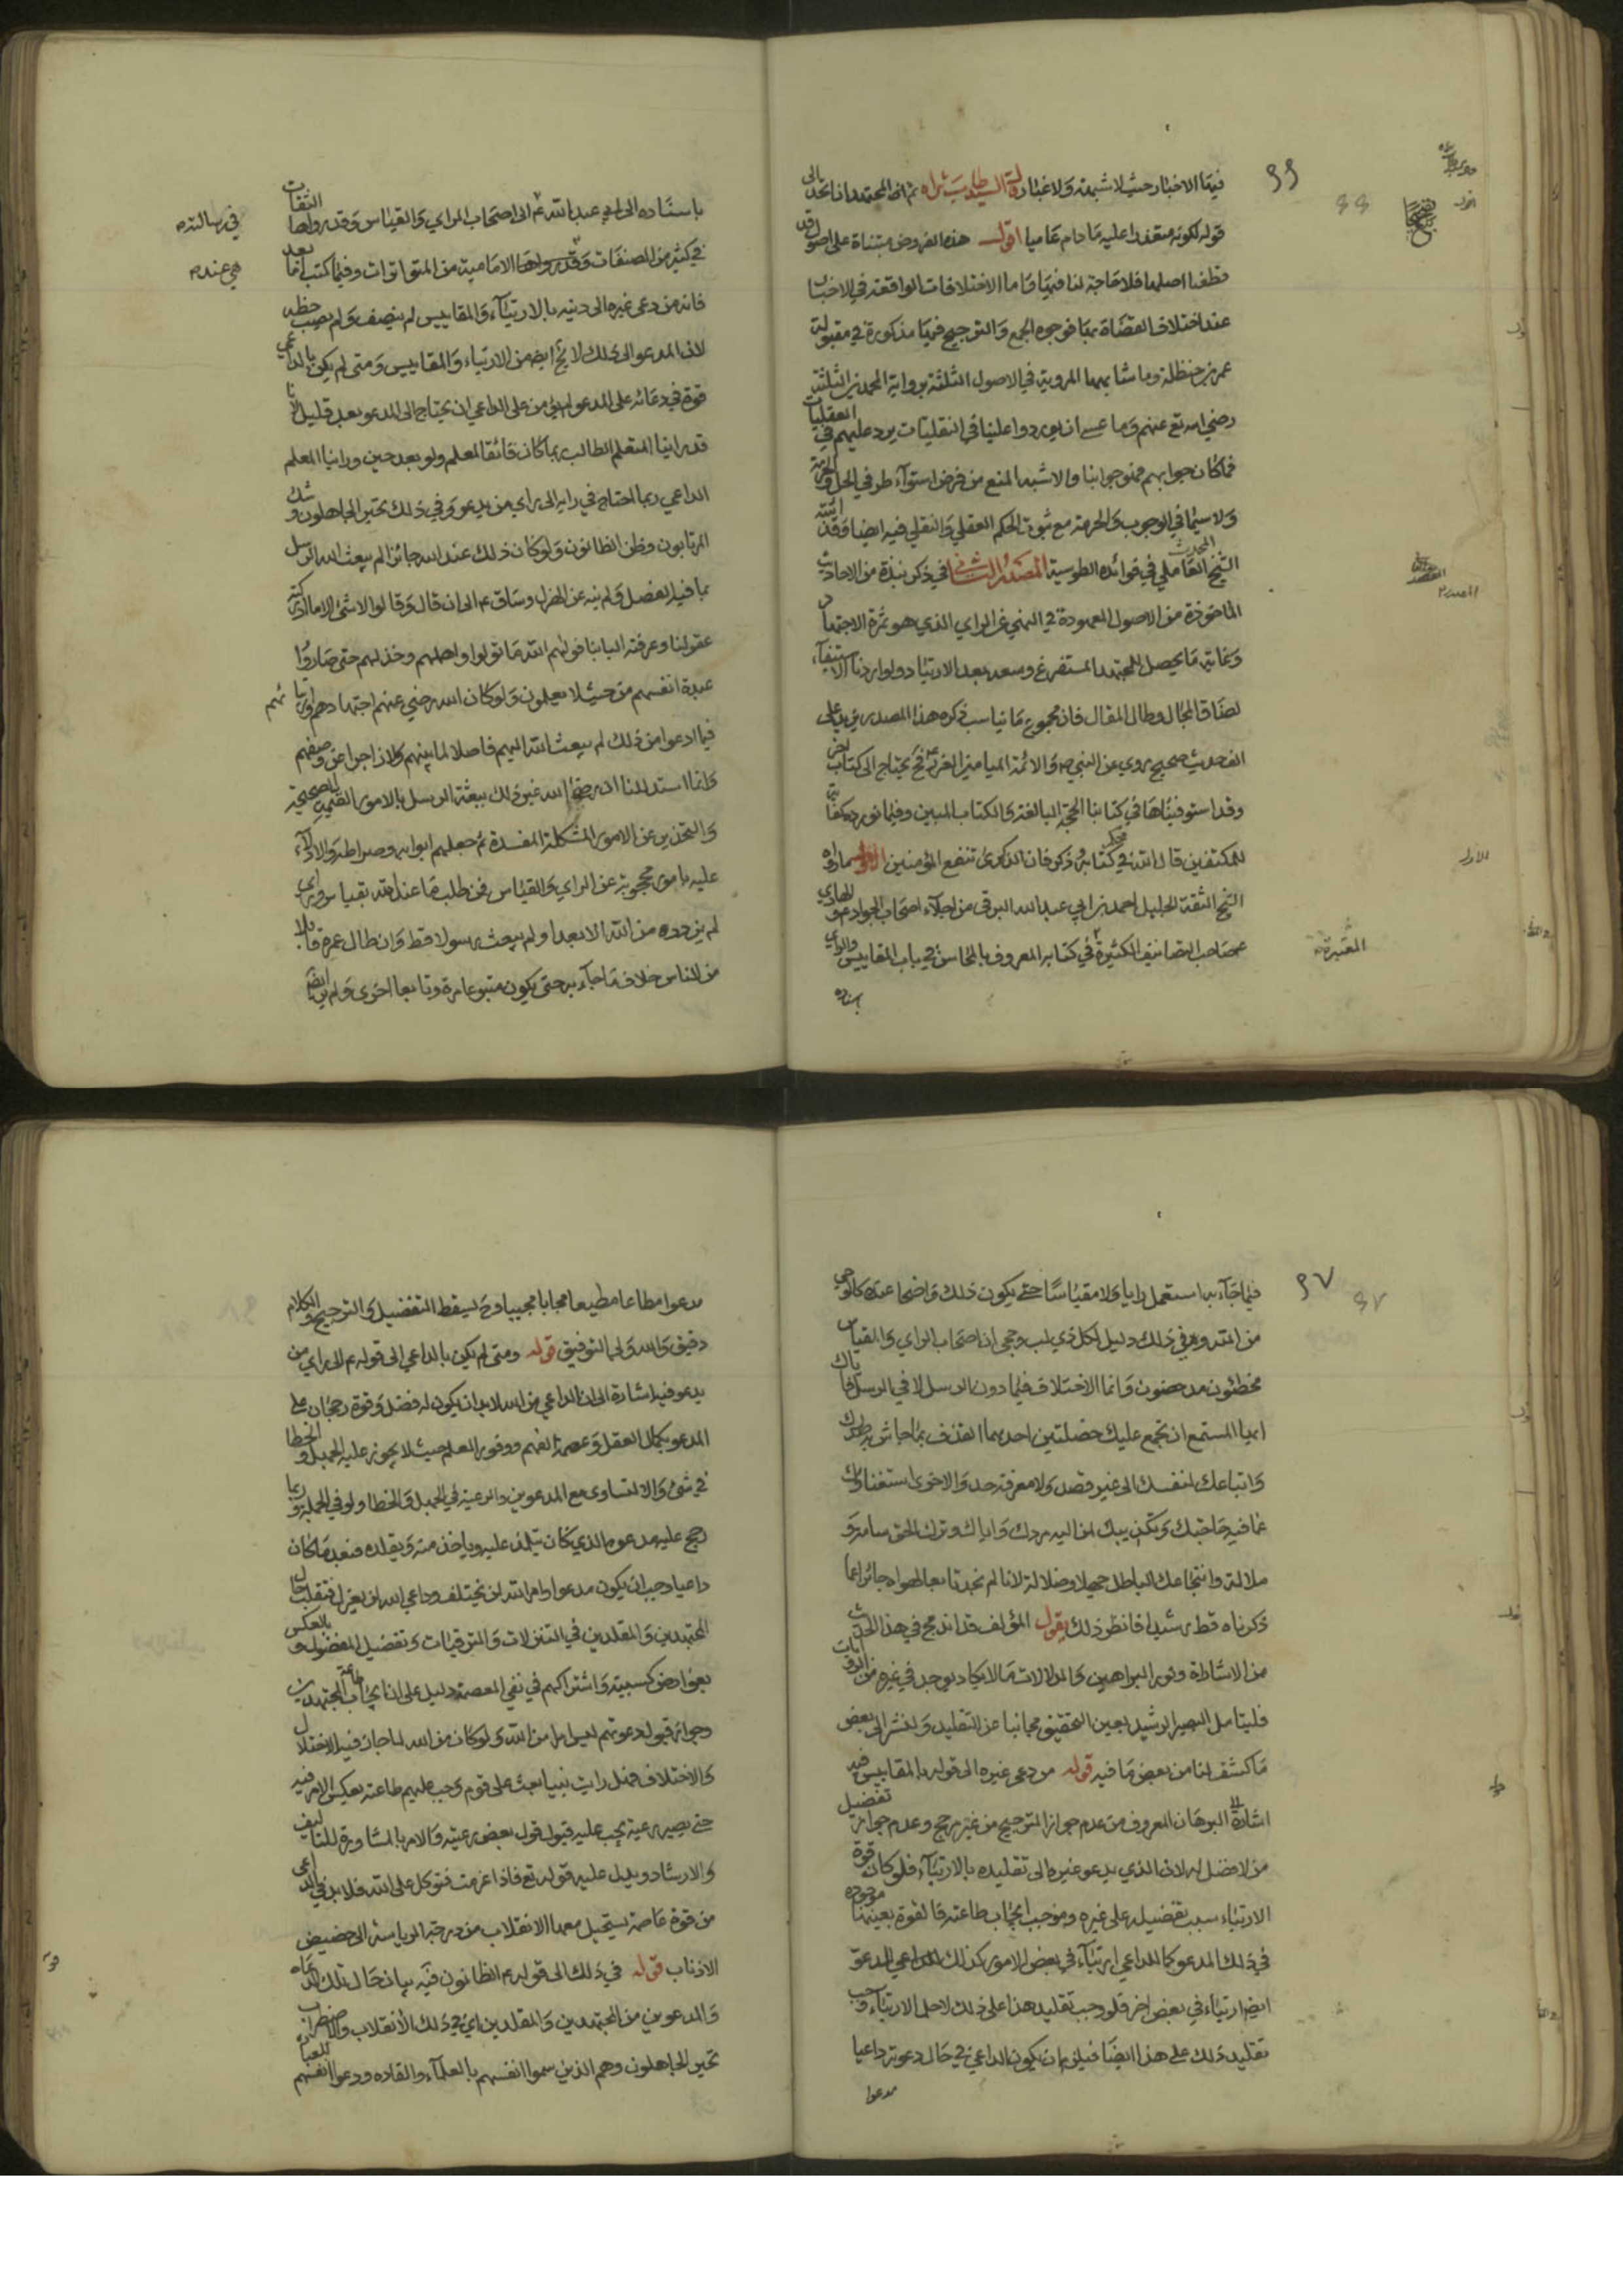 فيها الاخبار حيث لا شبهة ولا غبار قال السيد طاب ثراه ثم ان المجتهد ان اتحد تعالى
قوله لكونه متعذرا عليه ما دام عاميا اقول هذه الفروض مبتناة على اصول قد
قطعنا اصلها فلا حاجة لنا فيها واما الاختلافات الواقعة في الاخبار
عند اختلاف القضاة بها فوجوه الجمع والترجيح فيها مذكورة في مقبولة
عمر بن حنظلة وما شابهها المروية في الاصول الثلثة برواية المحمدين الثلثة
رضي الله تع عنهم وما عسى ان يوردوا علينا في النقليات يرد عليهم في العقليات
فما كان جوابهم فهو جوابنا والاشبه المنع من فرض استواء طرفي الحل والحرمة
ولا سيما في الوجوب والحرمة مع ثبوت الحكم العقلي والنقلي فيه ايضا وقد
الشيخ المحدث العاملي في فوائده الطوسية المصدر الثاني في ذكر نبذة من الاحاديث
الماخوذة من الاصول المعهودة في النهي عن الراي الذي هو ثمرة الاجتهاد
وغاية ما يحصل للمجتهد المستفرغ وسعه بعد الارتياد ولو اردنا الاستيفاء
لضاق المجال وطال المقال فان مجموع ما يناسب ذكره هذا المصدر يزيد على
الف حديث صحيح روي عن النبي ص والائمة الميامين الغر ع فيحتاج الى كتاب اخر
وقد استوفيناها في كتابنا الحجة البالغة والكتاب المبين وفيما نورده كفاية
للمكتفين قال الله في محكم كتابه وذكر فان الذكرى تنفع المؤمنين الاول ما رواه
الشيخ الثقة الجليل احمد بن ابي عبد الله البرقي من اجلاء اصحاب الجواد والهادي ع
صاحب التصانيف الكثيرة في كتابه المعروف بالمحاسن في باب المقاييس والراي
المعتبرة
باسناده
باسناده الى ابي عبد الله ع الى اصحاب الراي والقياس وقد رواها الثقات
في رسالته
في كثير من المصنفات وقد رواها الامامية من المتواترات وفيها كتب اما بعد
هي عنده
فانه من دعى غيره الى دينه بالارتياء والمقاييس لم ينصف ولم يصب حظه
لان المدعو الى ذلك لا يخ ايضا من الارتياء والمقاييس ومتى لم يكن بالداعي
قوة في دعائه على المدعو لم يؤمن على الداعي ان يحتاج الى المدعو بعد قليل لانا
قد راينا المتعلم الطالب ربما كان فائقا لمعلم ولو بعد حين وراينا المعلم
الداعي ربما احتاج في رايه الى راي من يدعو وفي ذلك تحير الجاهلون وشك
المرتابون وظن الظانون ولو كان ذلك عند الله جائزا لم يبعث الله الرسل
بما فيه الفصل ولم ينه عن الهزل وساق ع الى ان قال وقالوا لا شئ الا ما ادركته
عقولنا وعرفته البابنا فولاهم الله ما تولوا واهملهم وخذلهم حتى صاروا
عبدة انفسهم من حيث لا يعلمون ولو كان الله رضي عنهم اجتهادهم وارتيائهم
فيما ادعوا من ذلك لم يبعث الله اليهم فاصلا لما بينهم ولا زاجرا عن وصفهم
وانما استدللنا ان رضا الله غير ذلك ببعثه الرسل بالامور القيمة الصحيحة
والتحذير عن الامور المشكلة المفسدة ثم جعلهم ابوابه وصراطه والادلاء
عليه بامور محجوبة عن الراي والقياس فمن طلب ما عند الله بقياس وراي
لم يزدد من الله الا بعدا ولم يبعث رسولا قط وان طال عمره قابلا
من الناس خلاف ما جاء به حتى يكون متبوعا مرة وتابعا اخرى ولم ير ايضا
فيما جاء به استعمل رايا ولا مقياسا حتى يكون ذلك واضحا عنده كالوحي
من الله وفي ذلك دليل لكل ذي لب وحجى ان اصحاب الراي والقياس
مخطئون مدحضون وانما الاختلاف فيما دون الرسل لا في الرسل فاياك
ايها المستمع ان تجمع عليك خصلتين احدهما القذف بما جاش به صدرك
واتباعك لنفسك الى غير قصد ولا معرفة حد والاخرى استغناؤك
عما فيه حاجتك وتكذيبك لمن اليه مردك واياك وترك الحق سامة و
ملالة وانتجاعك الباطل جهلا وضلالة لانا لم نجد تابعا لهواه جائزا عما
ذكرناه قط رشيدا فانظر ذلك يقول المؤلف قد اندمج في هذا الحديث
من الاشارة ونور البراهين والدلالات ما لا يكاد يوجد في غيره من الروايات
فليتامل البصير الرشيد بعين التحقيق مجانبا عن التقليد ولنشر الى بعض
ما كشف لنا من بعض ما فيه قوله من دعى غيره الى قوله بالمقاييس فيه
اشارة الى البرهان المعروف من عدم جواز الترجيح من غير مرجح وعدم جواز تفضيل
من لا فضل له لان الذي يدعو غيره الى تقليده بالارتياء فلو كان قوة
الارتياء سبب تفضيله على غيره وموجب ايجاب طاعته فالقوة بعينها موجودة
في ذلك المدعو كما للداعي ارتياء في بعض الامور كذلك للداعي المدعو
ايضا ارتياء في بعض اخر فلو وجب تقليد هذا على ذلك لاجل الارتياء وجب
تقليد ذلك على هذا ايضا فيلزم ان يكون الداعي في حال دعوته داعيا
مدعوا
مدعوا مطاعا مطيعا مجابا مجيبا وح يسقط التفضيل والترجيح والكلام
دقيق والله ولي التوفيق قوله ومتى لم يكن بالداعي الى قوله ع الى راي من
يدعو فيه اشارة الى ان الداعي من الله لابد ان يكون له فضل وقوة رجحان على
المدعو بكمال العقل وعصمة الفهم ووفور العلم حيث لا يجوز عليه الجهل والخطا
في شئ والا لتساوى مع المدعوين والرعية في الجهل والخطا ولو في الجملة وربما
رجح عليه مدعوه الذي كان يتلمذ عليه وياخذ منه ويقلده فبعد ما كان
داعيا وجب ان يكون مدعوا وامر الله لن يختلف وداعي الله لن يعزل فتقلب حال
المجتهدين والمقلدين في التنزلات والترقيات وتفضيل المفضول وبالعكس
بعوارض كسبية واشتراكهم في نفي العصمة دليل على ان ايجاب طاعة المجتهدين
وجواز قبول دعوتهم ليس امرا من الله ولو كان من الله لما جاز فيه الاختلال
والاختلاف فهل رايت نبيا بعث على قوم وجب عليهم طاعته بعكس الامر فيه
حتى يصير رعية يجب عليه قبول قول بعض رعيته والامر بالمشاورة للتاليف
والارشاد ويدل عليه قوله تع فاذا عزمت فتوكل على الله فلابد في الداعي
من قوة عاصمة يستحيل معها الانقلاب من درجة الرياسة الى حضيض
الاذناب قوله في ذلك الى قوله ع الظانون فيه بيان حال تلك الدعاة
والمدعوين من المجتهدين والمقلدين اي في ذلك الانقلاب والاضطراب
تحير الجاهلون وهم الذين سموا انفسهم بالعلماء والقادة ودعوا انفسهم